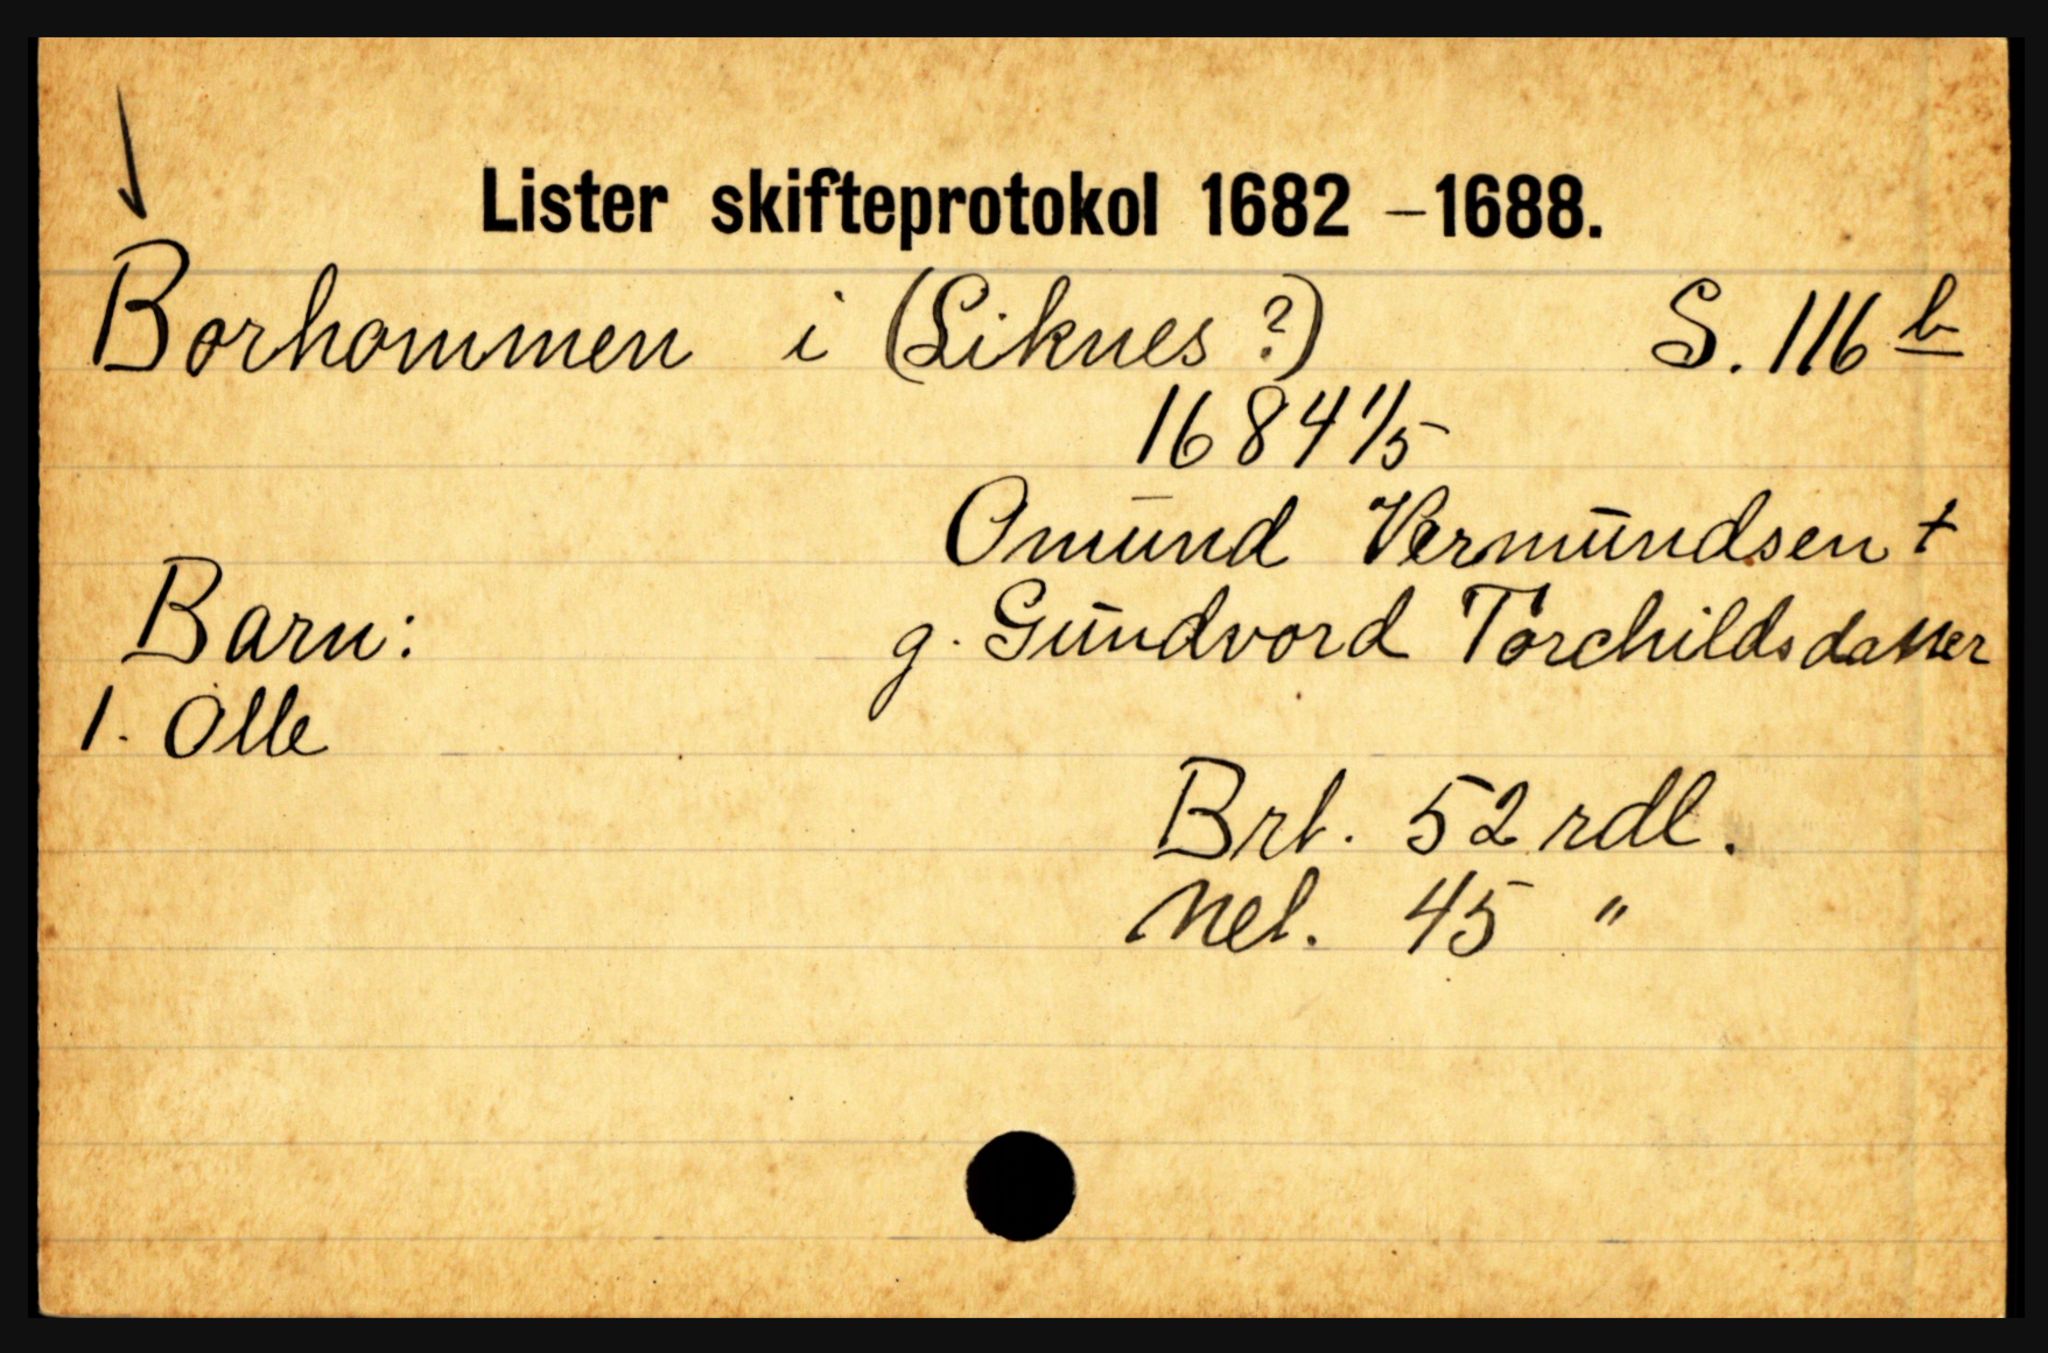 Lister skifteprotokol 1682 – 1688.
Borhommen i (Liknes?) S. 116 b
1684 1/5
Omund Vermundsen +
Barn: g. Gundvord Torchildsdatter
1. Olle
Brt. 52 rdl.
Net. 45 "